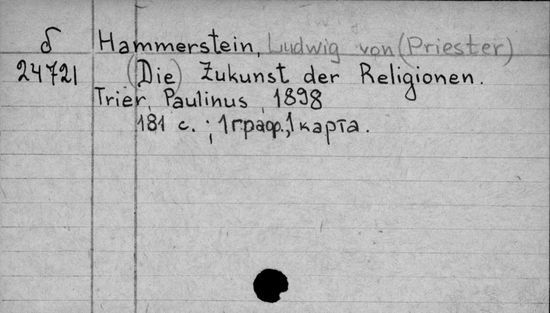 δ Hammerstein, Ludwig von (Priester)
24721 (Die) Zukunst der Religionen.
Trier, Paulinus, 1898
181 с. ; 1 граф., 1 карта.